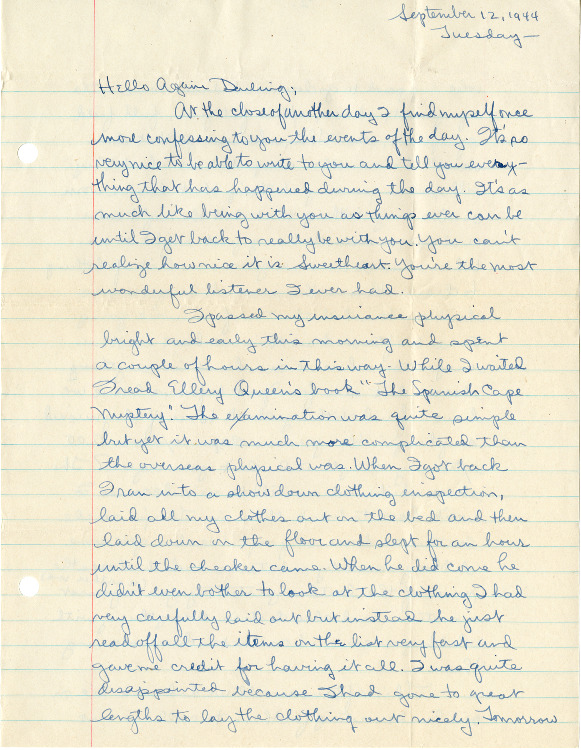 September 12, 1944
Tuesday—
Hello Again Darling,
At the close of another day I find myself once
more confessing to you the events of the day. It's so
very nice to be able to write to you and tell you every-
thing that has happened during the day. It's as
much like being with you as things ever can be
until I get back to really be with you. You can't
realize how nice it is Sweetheart. You're the most
wonderful listener I ever had.
I passed my insurance physical
bright and early this morning and spent
a couple of hours in this way. While I waited
I read Ellery Queen's book "The Spanish Cape
Mystery". The examination was quite simple
but yet it was much more complicated than
the overseas physical was. When I got back
I ran into a showdown clothing inspection,
laid all my clothes out on the bed and then
laid down on the floor and slept for an hour
until the checker came. When he did come he
didn't even bother to look at the clothing I had
very carefully laid out but instead he just
read off all the items on the list very fast and
gave me credit for having it all. I was quite
disappointed because I had gone to great
lengths to lay the clothing out nicely. Tomorrow